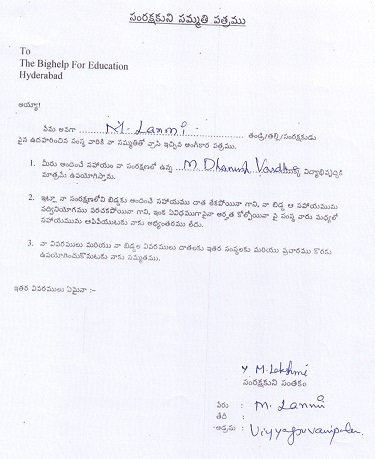 సంరక్షకుని సమ్మతి పత్రము
To
The Bighelp For Education
Hyderabad
అయ్యా!
నేను అనగా M. Laxmi తండ్రి/తల్లి/సంరక్షకుడు
పైన ఉదహరించిన సంస్థ వారికి నా సమ్మతితో వ్రాసి ఇచ్చిన అంగీకార పత్రము.
1. మీరు అందించే సహాయం నా సంరక్షణలో ఉన్న M. Dhanush Vardhan యొక్క విద్యాభివృద్ధికి
మాత్రమే ఉపయోగిస్తాము.
2. ఇట్లూ నా సంరక్షణలోని బిడ్డకు అందించే సహాయము దాత శికపోయినా గాని, నా బిడ్డ ఆ సహాయమును
సద్వినియోగము పరచకపోయినా గాని, ఇంక ఏవిధముగానైనా అర్హత కోల్పోయినా పై సంస్థ వారు మధ్యలో
సహాయమును ఆపివేయుటకు నాకు అభ్యంతరము లేదు.
3. నా వివరములు మరియు నా బిడ్డల వివరములు దాతలకు ఇతర సంస్థలకు మరియు ప్రచారము కొరకు
ఉపయోగించుకొనుటకు నాకు సమ్మతము.
ఇతర వివరములు ఏమైనా :-
M. Lakshmi
సంరక్షకుని సంతకం
పేరు : M. Laxmi
తేదీ :
అడ్రసు :